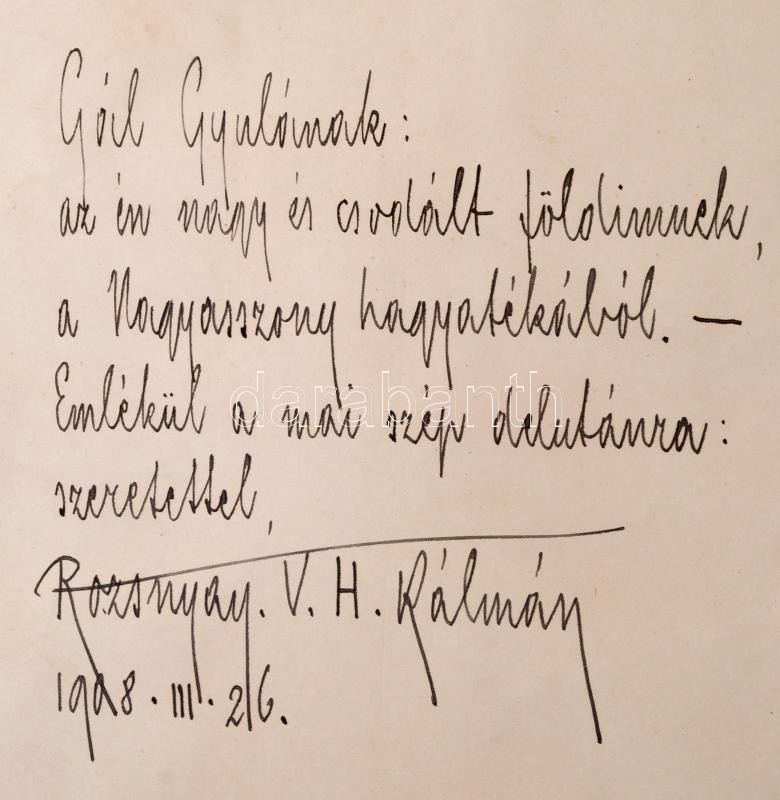 Gáil Gyulának:
az én nagy és csodált földimnek,
a Nagyasszony hagyatékából. —
Emlékül a mai szép delutánra:
szeretettel,
Rozsnyay. V. H. Kálmán
1908. III. 26.
darabanth